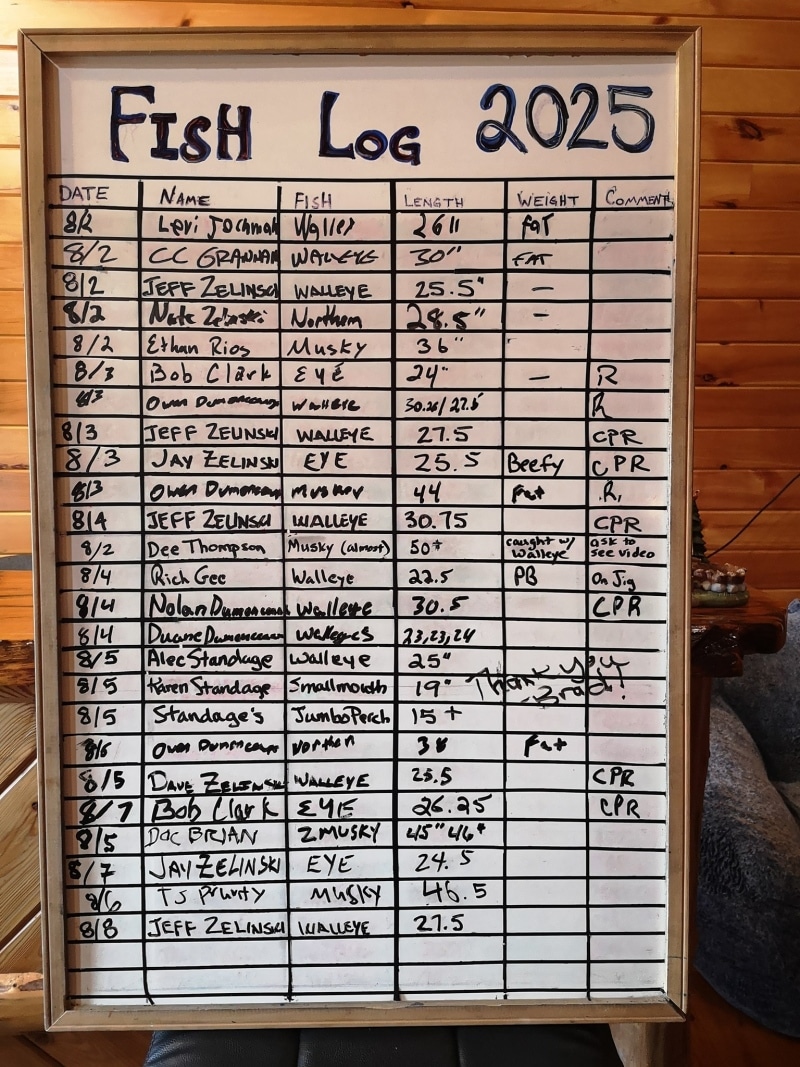 FISH LOG 2025
DATE NAME FISH LENGTH WEIGHT COMMENTS
8/2 Levi 26" FAT
8/2 CC GRANNAN WALLEYE 30" FAT
8/2 JEFF ZELINSKI WALLEYE 25.5" —
8/2 Nate Zelinski Northern 28.5" —
8/2 Ethan Rios Musky 36"
8/3 Bob Clark EYE 24" — R
8/3 Owen WallEye 30.25/27.5 R
8/3 JEFF ZELINSKI WALLEYE 27.5 CPR
8/3 JAY ZELINSKI EYE 25.5 Beefy CPR
8/3 Owen 44 Fat R,
8/4 JEFF ZELINSKI WALLEYE 30.75 CPR
8/2 Dee Thompson Musky (almost) 50+ caught w/ Walleye ask to see video
8/4 Rich Gee Walleye 22.5 PB On Jig
8/4 Nolan Walleye 30.5 CPR
8/4 Duane Walleyes 23,23,24
8/5 Alec Standage Walleye 25"
8/5 Karen Standage Smallmouth 19" Thank you! -Brad!
8/5 Standage's Jumbo Perch 15+
8/6 Owen Northern 38 Fat
8/5 DAVE ZELINSKI WALLEYE 25.5 CPR
8/7 Bob Clark EYE 26.25 CPR
8/5 DOC BRIAN 2MUSKY 45" 46"
8/7 JAY ZELINSKI EYE 24.5
8/6 TJ MUSKY 46.5
8/8 JEFF ZELINSKI WALLEYE 27.5